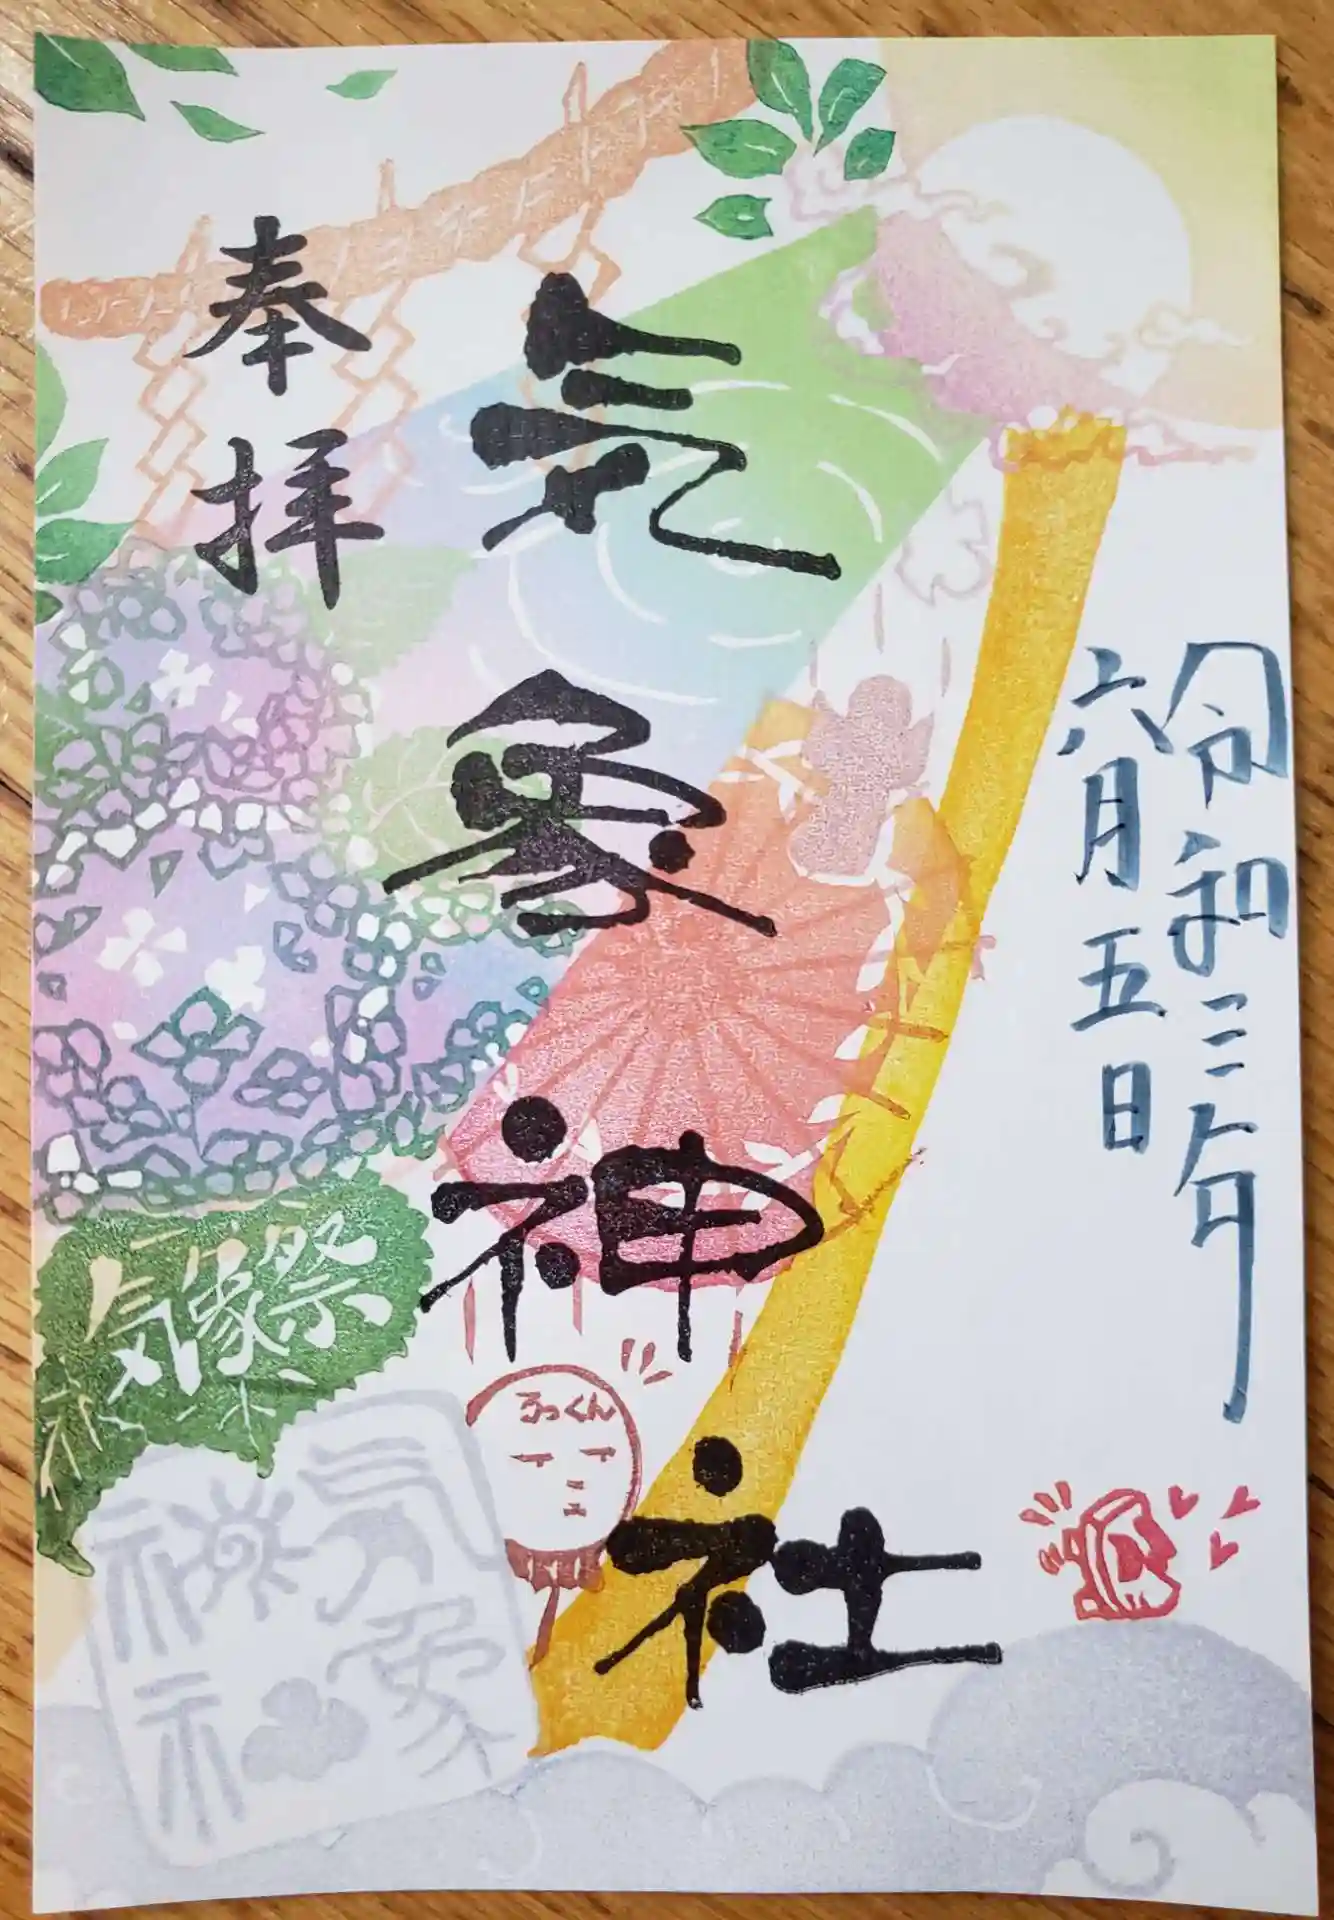 令和三年
六月五日
気象神社
奉拝
気象祭
ふっくん
気象
神社